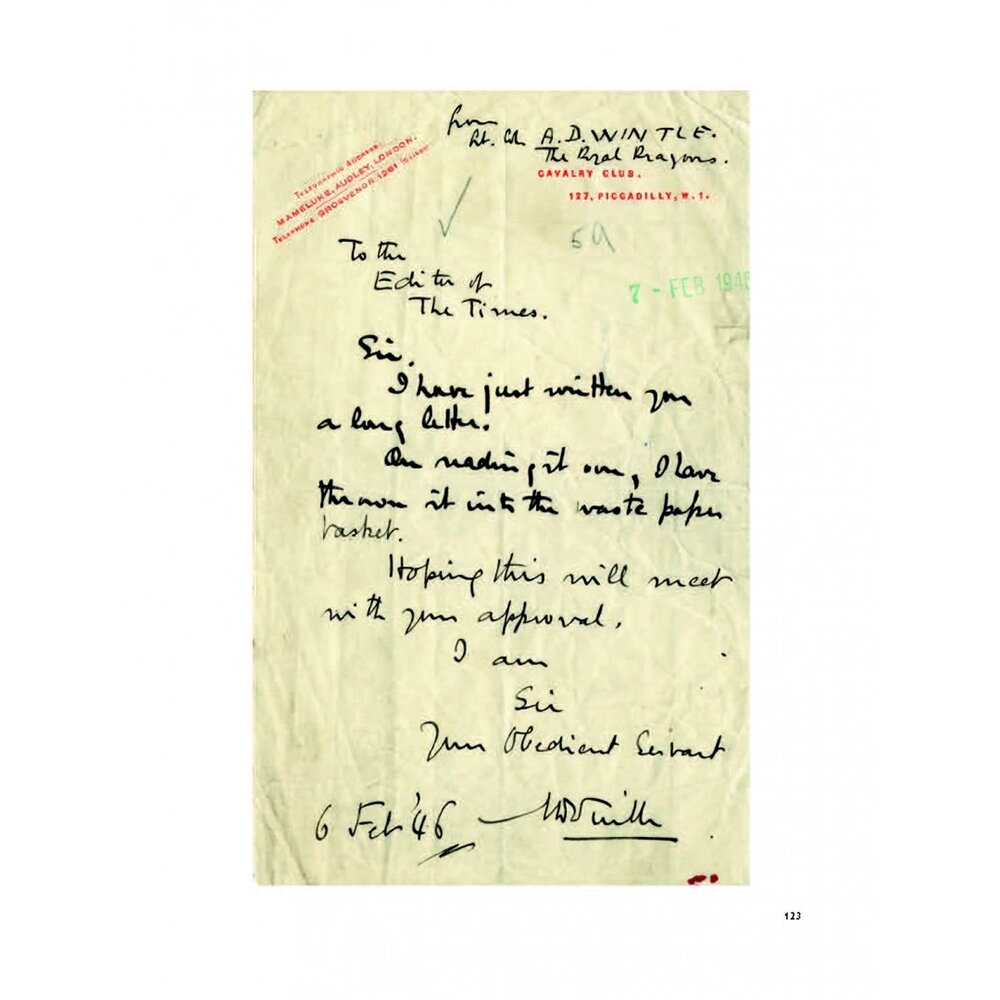 from
Lt. Col. A.D. WINTLE.
The Royal Dragoons.
CAVALRY CLUB.
127, PICCADILLY, W.1.
TELEGRAPHIC ADDRESS:
MAMELUKE, AUDLEY, LONDON.
TELEPHONE GROSVENOR 1261
5A
7 - FEB 1946
To the
Editor of
The Times.
Sir.
I have just written you
a long letter.
On reading it over, I have
thrown it into the waste paper
basket.
Hoping this will meet
with your approval,
I am
Sir
Your Obedient Servant
6 Feb '46 ADWintle
123